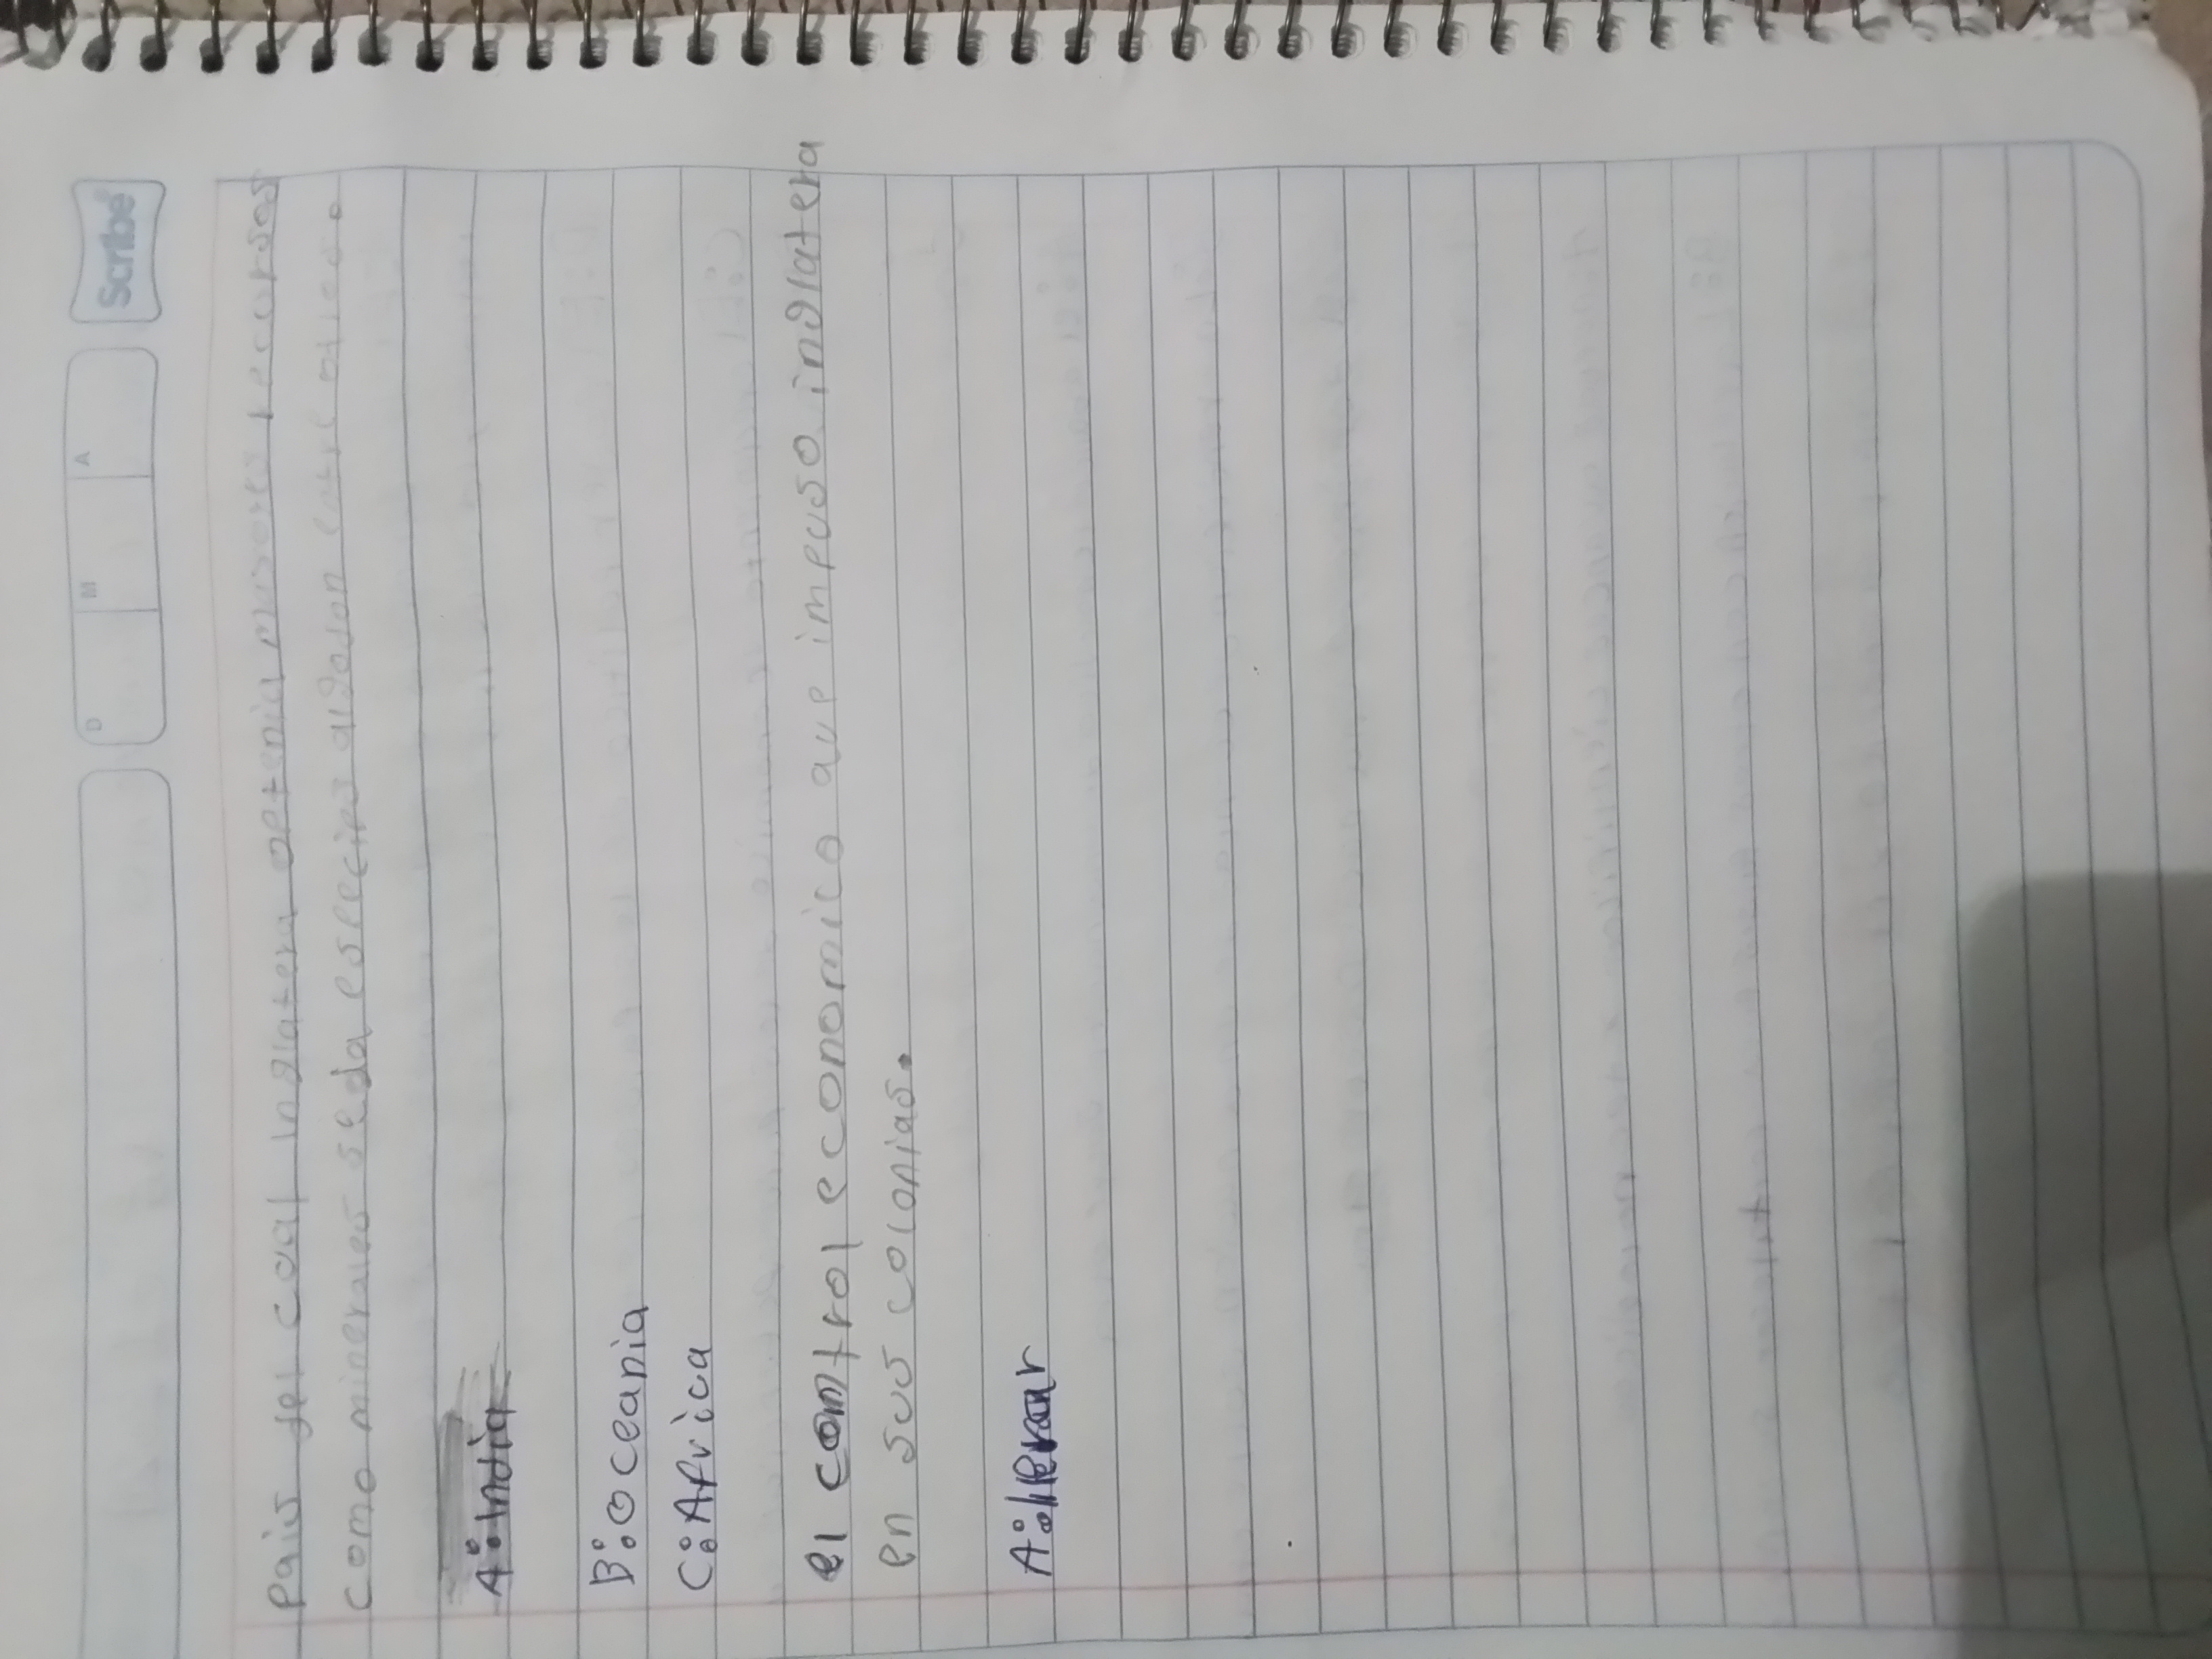 Scribe
D M A
Pais del cual inglatera optenia muschos recursos
como minerales seda especies algodon entre otros.
A: India
B: Oceania
C: Africa
el comtrol economico que impuso inglatera
en sus colonias.
A: